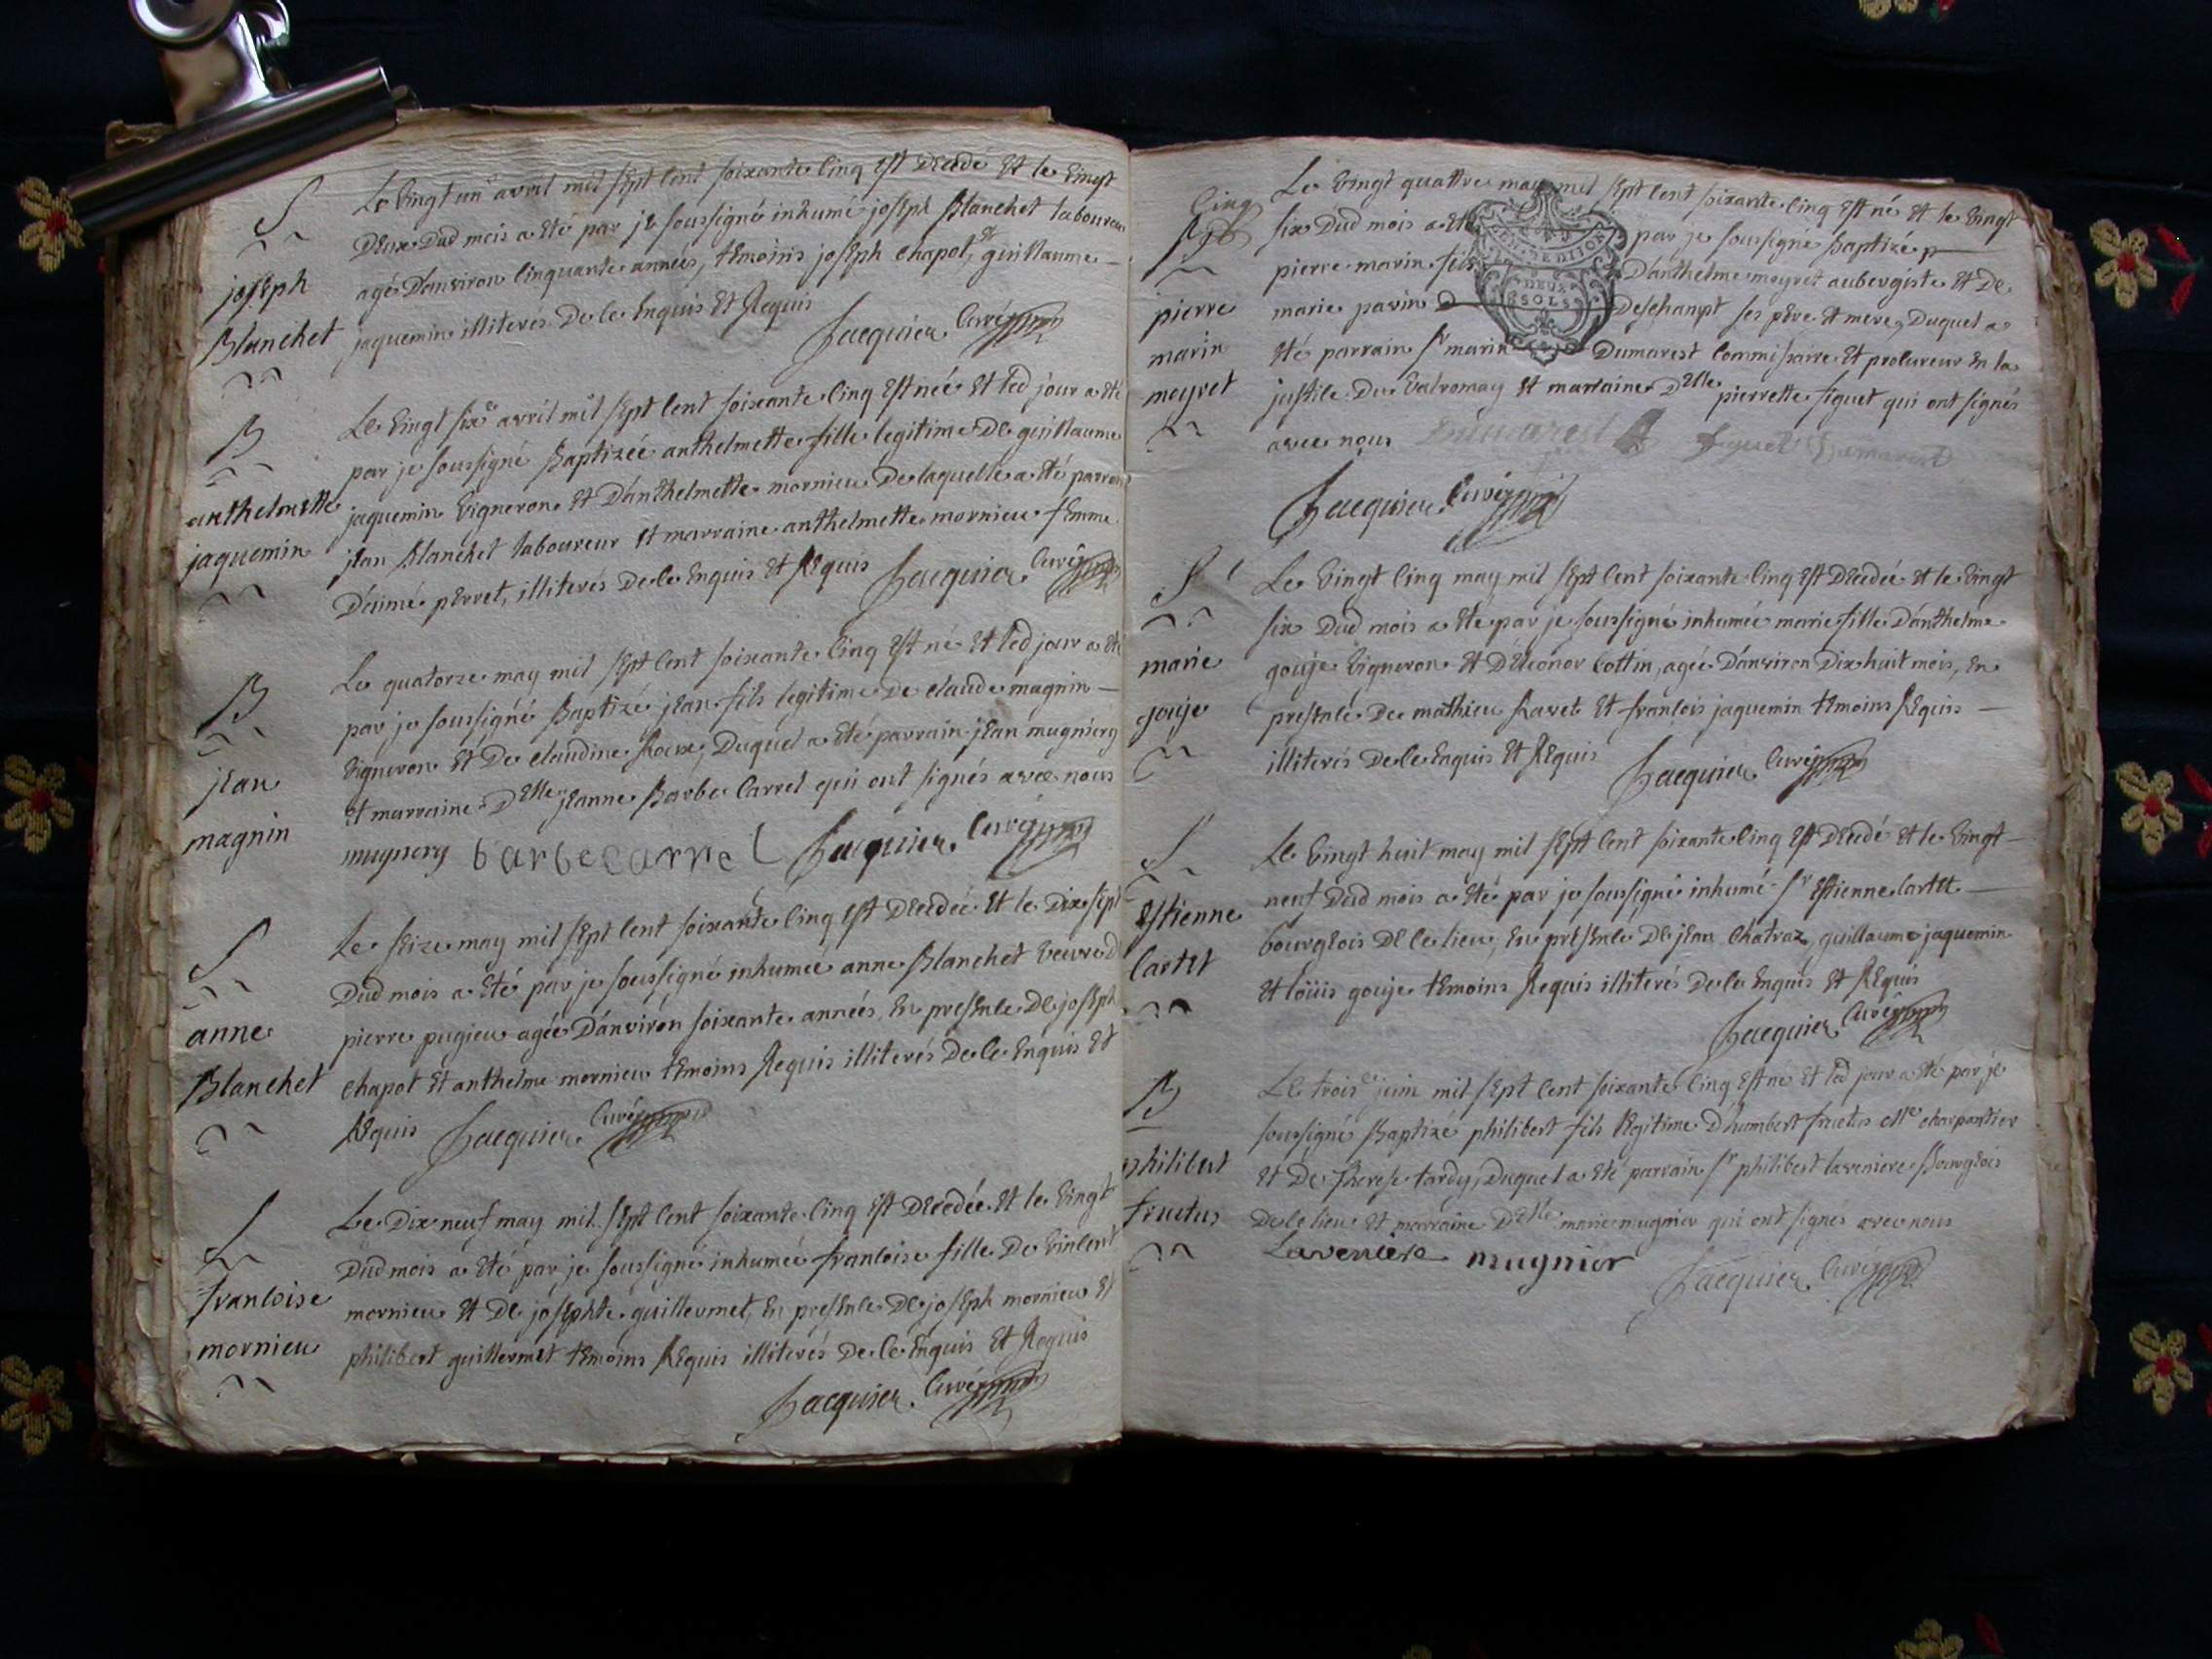 S
joseph
Blanchet
Le vingt un avril mil sept cent soixante cinq est decedé et le vingt
deux dud mois a eté par je soussigné inhumé joseph Blanchet laboureur
agé d'anviron cinquante années, temoins joseph chapot, et guillaume
jaquemin illiterés de ce enquis et requis
Jacquier curé
B
anthelmette
jaquemin
Le vingt six avril mil sept cent soixante cinq est née et led jour a eté
par je soussigné baptizée anthelmette fille legitime de guillaume
jaquemin vigneron et d'anthelmette mornieu de laquelle a eté parrain
jean Blanchet laboureur et marraine anthelmette mornieu femme
d'aimé perret, illiterés de ce enquis et requis Jacquier curé
B
jean
magnin
Le quatorze may mil sept cent soixante cinq est né et led jour a eté
par je soussigné baptizé jean fils legitime de claude magnin
vigneron et de claudine Roux, duquel a eté parrain jean mugniery
et marraine Delle jeanne Barbe Carrel qui ont signés avec nous
mugniery barbe carrel Jacquier curé
S
anne
Blanchet
Le seize may mil sept cent soixante cinq est decedée et le dix sept
dud mois a eté par je soussigné inhumée anne Blanchet veuve d
pierre pugieu agée d'anviron soixante années, en presence de joseph
chapot et anthelme mornieu temoins requis illiterés de ce enquis et
requis Jacquier curé
S
francoise
mornieu
Le dix neuf may mil sept cent soixante cinq est decedée et le vingt
dud mois a eté par je soussigné inhumée francoise fille de vincent
mornieu et de josephte guillermet, en presence de joseph mornieu et
philibert guillermet temoins requis illiterés de ce enquis et requis
Jacquier curé
cinq
pierre
marin
meyret
Le vingt quattre may mil sept cent soixante cinq est né et le vingt
six dud mois a eté par je soussigné baptizé
pierre marin fils d'anthelme meyret aubergiste et de
marie parin Deschampt ses pere et mere, duquel a
eté parrain Sr marin Dumarest commissaire et procureur en la
justice du valromay et marraine Delle pierrette siguet qui ont signés
avec nous Dumarest siguet Dumarest
DEUX
SOLS
Jacquier curé
S
marie
gouje
Le vingt cinq may mil sept cent soixante cinq est decedée et le vingt
six dud mois a eté par je soussigné inhumée marie fille d'anthelme
gouje vigneron et d'eleonor cottin, agée d'anviron dix huit mois, en
presence de mathieu Ravet et francois jaquemin temoins requis
illiterés de ce enquis et requis Jacquier curé
S
estienne
cartet
Le vingt huit may mil sept cent soixante cinq est decedé et le vingt
neuf dud mois a eté par je soussigné inhumé Sr estienne cartet
bourgeois de ce lieu, en presence de jean chatraz, guillaume jaquemin
et loüis gouje temoins requis illiterés de ce enquis et requis
Jacquier curé
B
philibert
fructus
Le trois juin mil sept cent soixante cinq est né et led jour a eté par je
soussigné baptizé philibert fils legitime d'humbert fructus me charpantier
et de therese tardy, duquel a eté parrain Sr philibert laveniere Bourgeois
de ce lieu et marraine Delle marie mugnier qui ont signés avec nous
Laveniere mugnier Jacquier curé